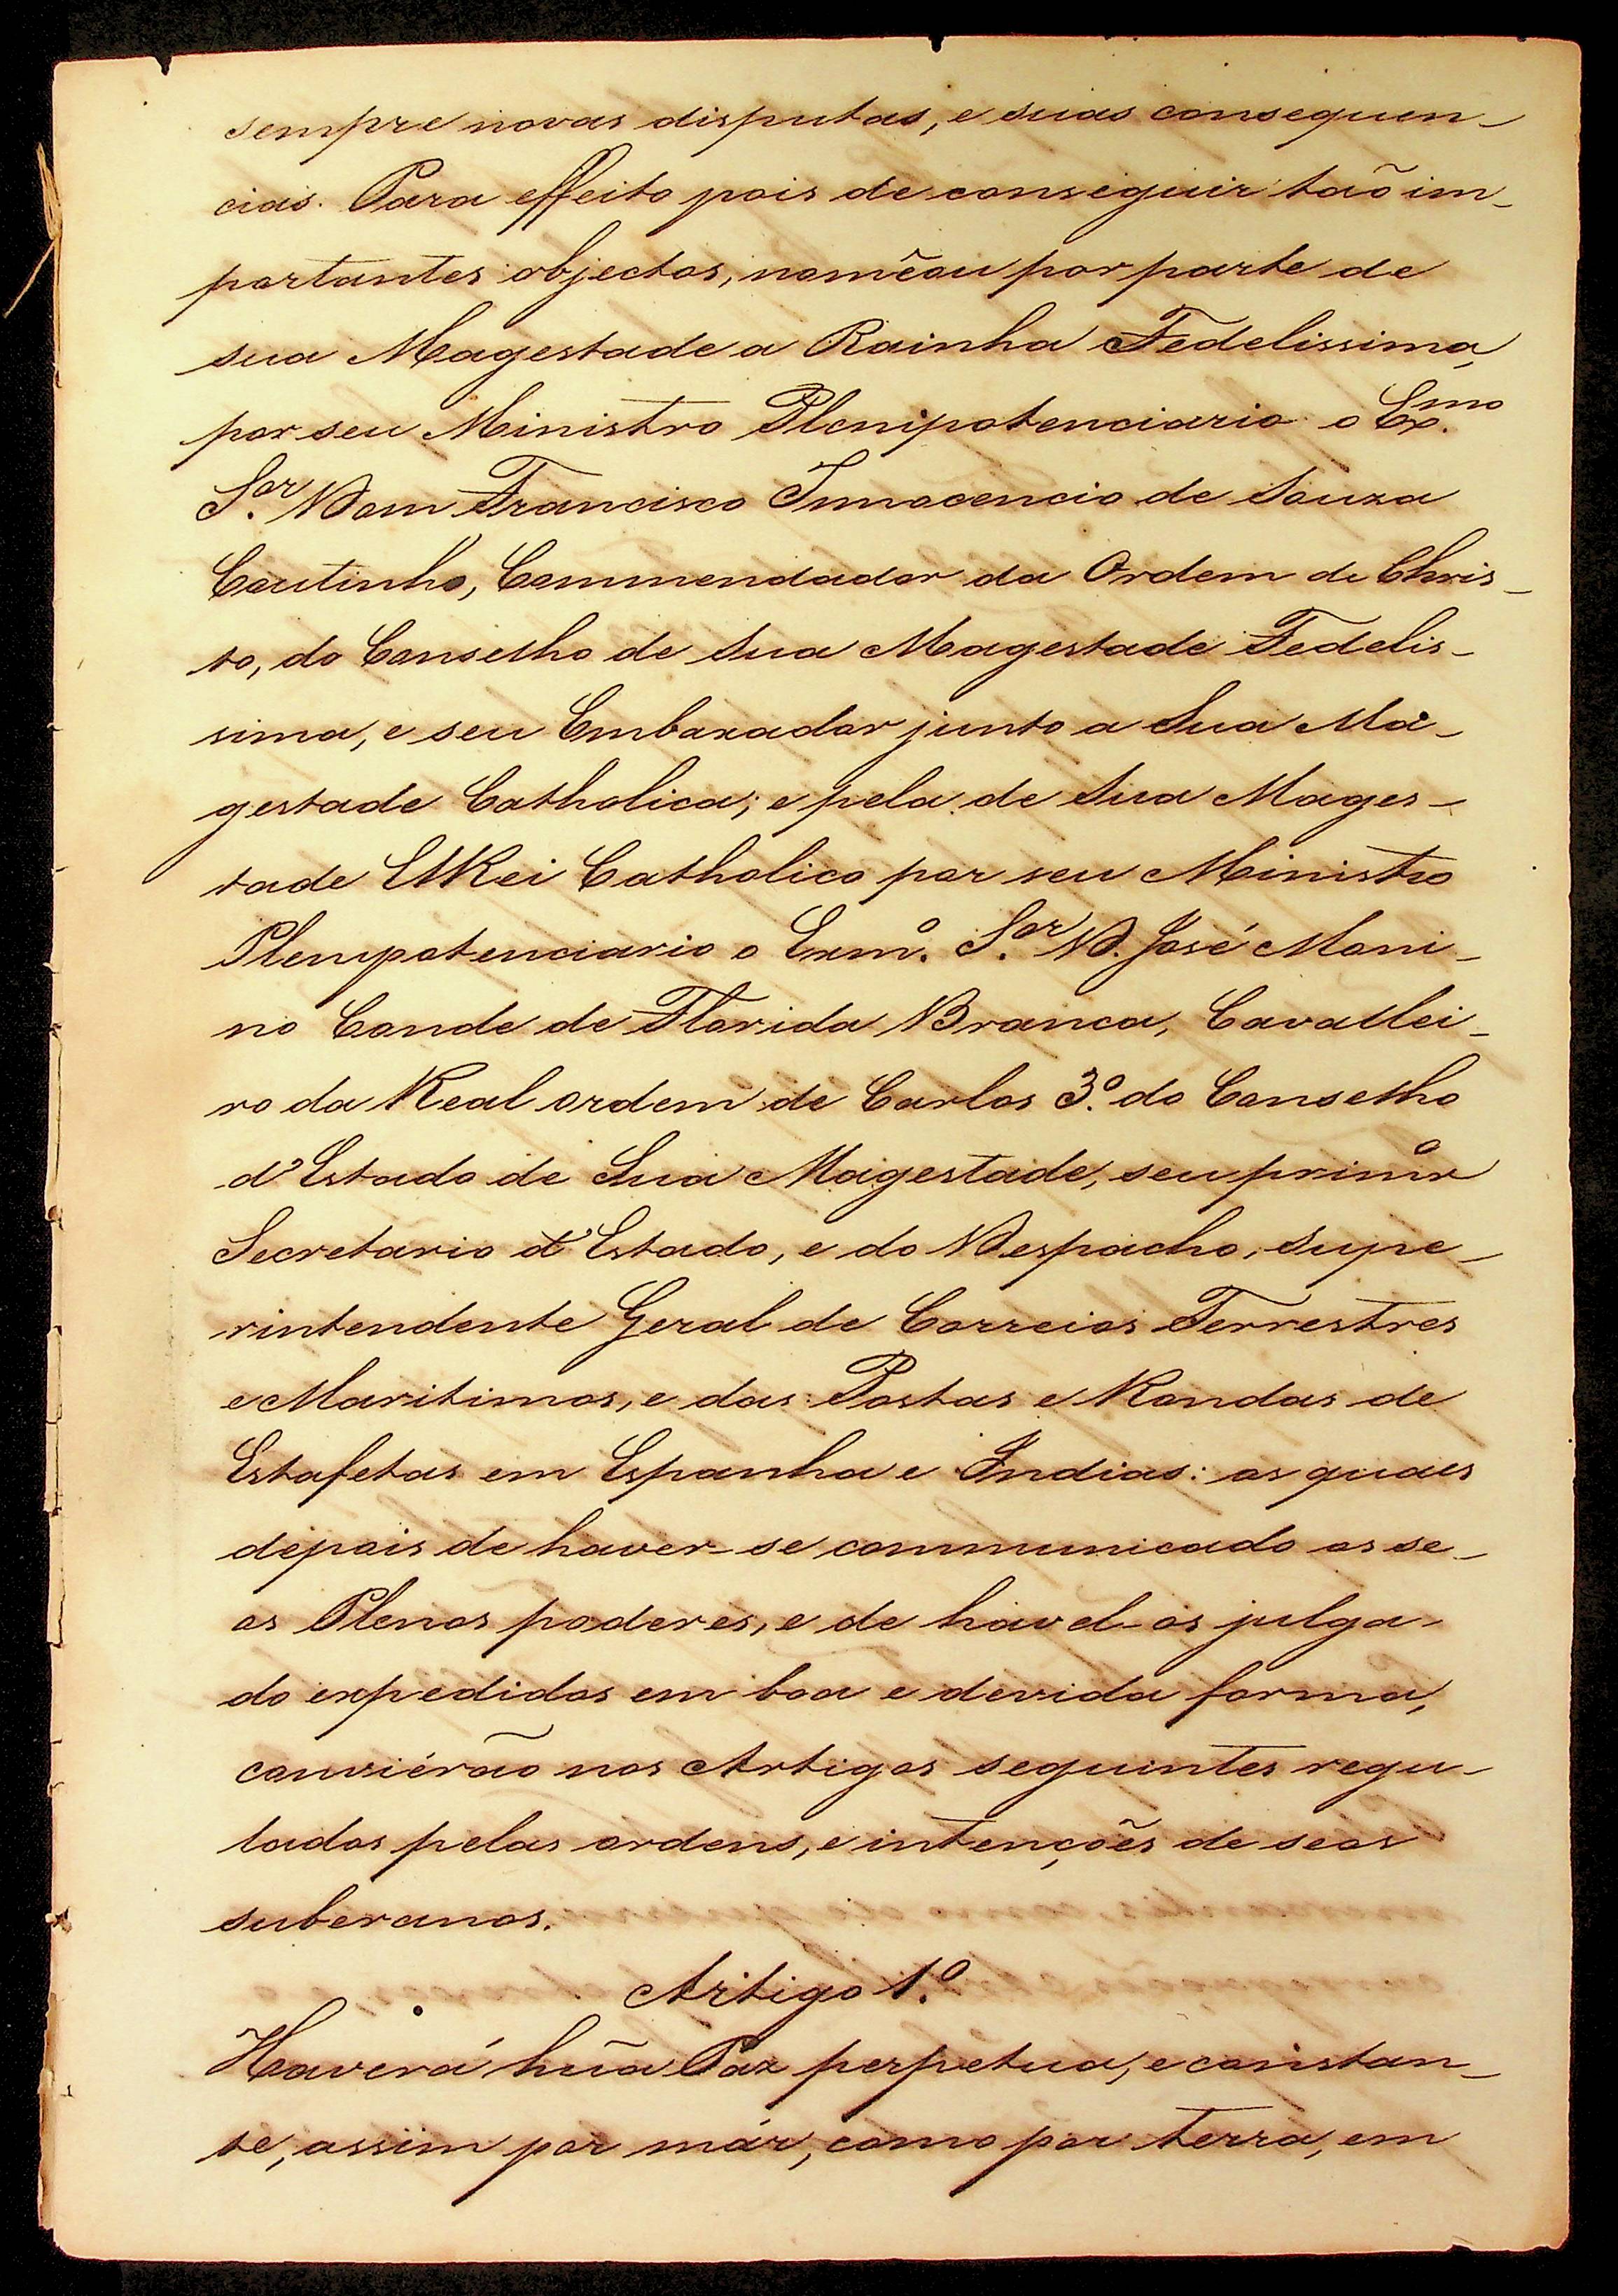 sempre novas disputas, e suas consequen-
cias. Para effeito pois de conseguir taõ im-
portantes objectos, nomêou por parte de
sua Magestade a Rainha Fedelissima,
por seu Ministro Plenipotenciario o Ex.mo
S.or Dom Francisco Innocencio de Souza
Coutinho, Commendador da Ordem de Chris-
to, do Conselho de Sua Magestade Fedelis-
sima, e seu Embaxador junto a Sua Ma-
gestade Catholica; e pela de Sua Mages-
tade ElRei Catholico por seu Ministro
Plenipotenciario o Exm.o S.or D. José Moni-
no Conde de Florida Branca, Cavallei-
ro da Real ordem de Carlos 3.o do Conselho
d'Estado de Sua Magestade, seu primr.o
Secretario d'Estado, e do Despacho, supe-
rintendente Geral de Correios Terrestres
e Maritimos, e das Postas e Rondas de
Estafetas em Espanha e Indias: os quaes
depois de haver-se communicado os se-
os Plenos poderes, e de havel-os julga-
do expedidos em boa e devida forma,
conviérão nos Artigos seguintes regu-
lados pelas ordens, e intenções de seos
suberanos.
Artigo 1.o
Haverá hũa Paz perpetua, e constan-
te, assim por már, como por terra, em